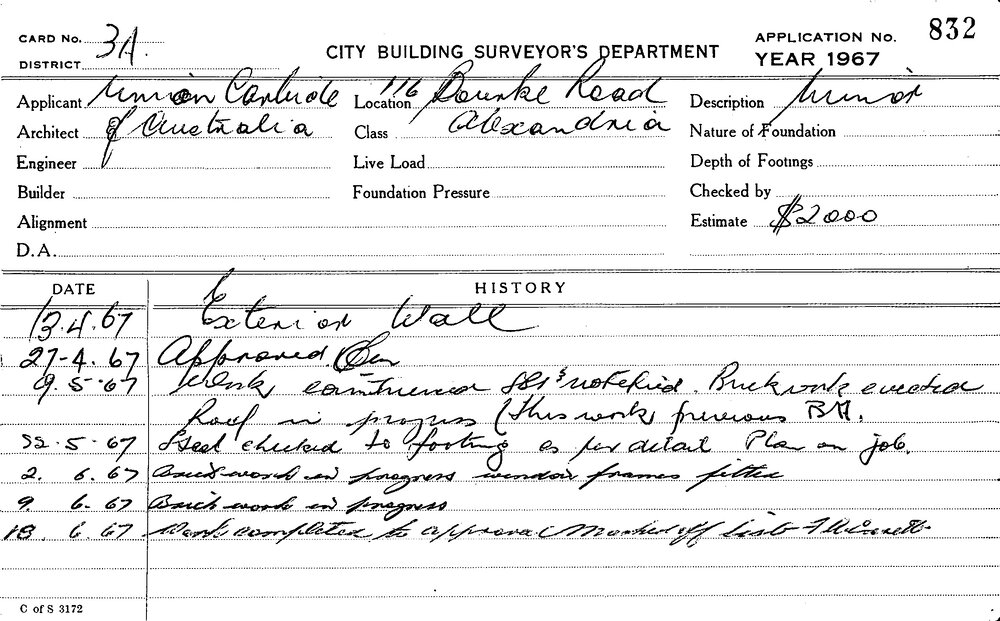 CARD No. 3A.
DISTRICT
CITY BUILDING SURVEYOR'S DEPARTMENT
APPLICATION No. 832
YEAR 1967
Applicant Union Carbide
Location 116 Bourke Road
Description Minor
Architect of Australia
Class Alexandria
Nature of Foundation
Engineer
Live Load
Depth of Footings
Builder
Foundation Pressure
Checked by
Alignment
Estimate $2000
D.A.
DATE HISTORY
13.4.67 Exterior Wall
27-4.67 Approved
9.5.67 Work commenced notified. Brickwork erected
Roof in progress (this work previous B.A.
5.67 Steel checked to footing as per detail Plan on job.
2. 6.67 Brickwork in progress window frames fitted
9. 6.67 Brick work in progress
18. 6.67 Work completed to approval Marked off list
C of S 3172